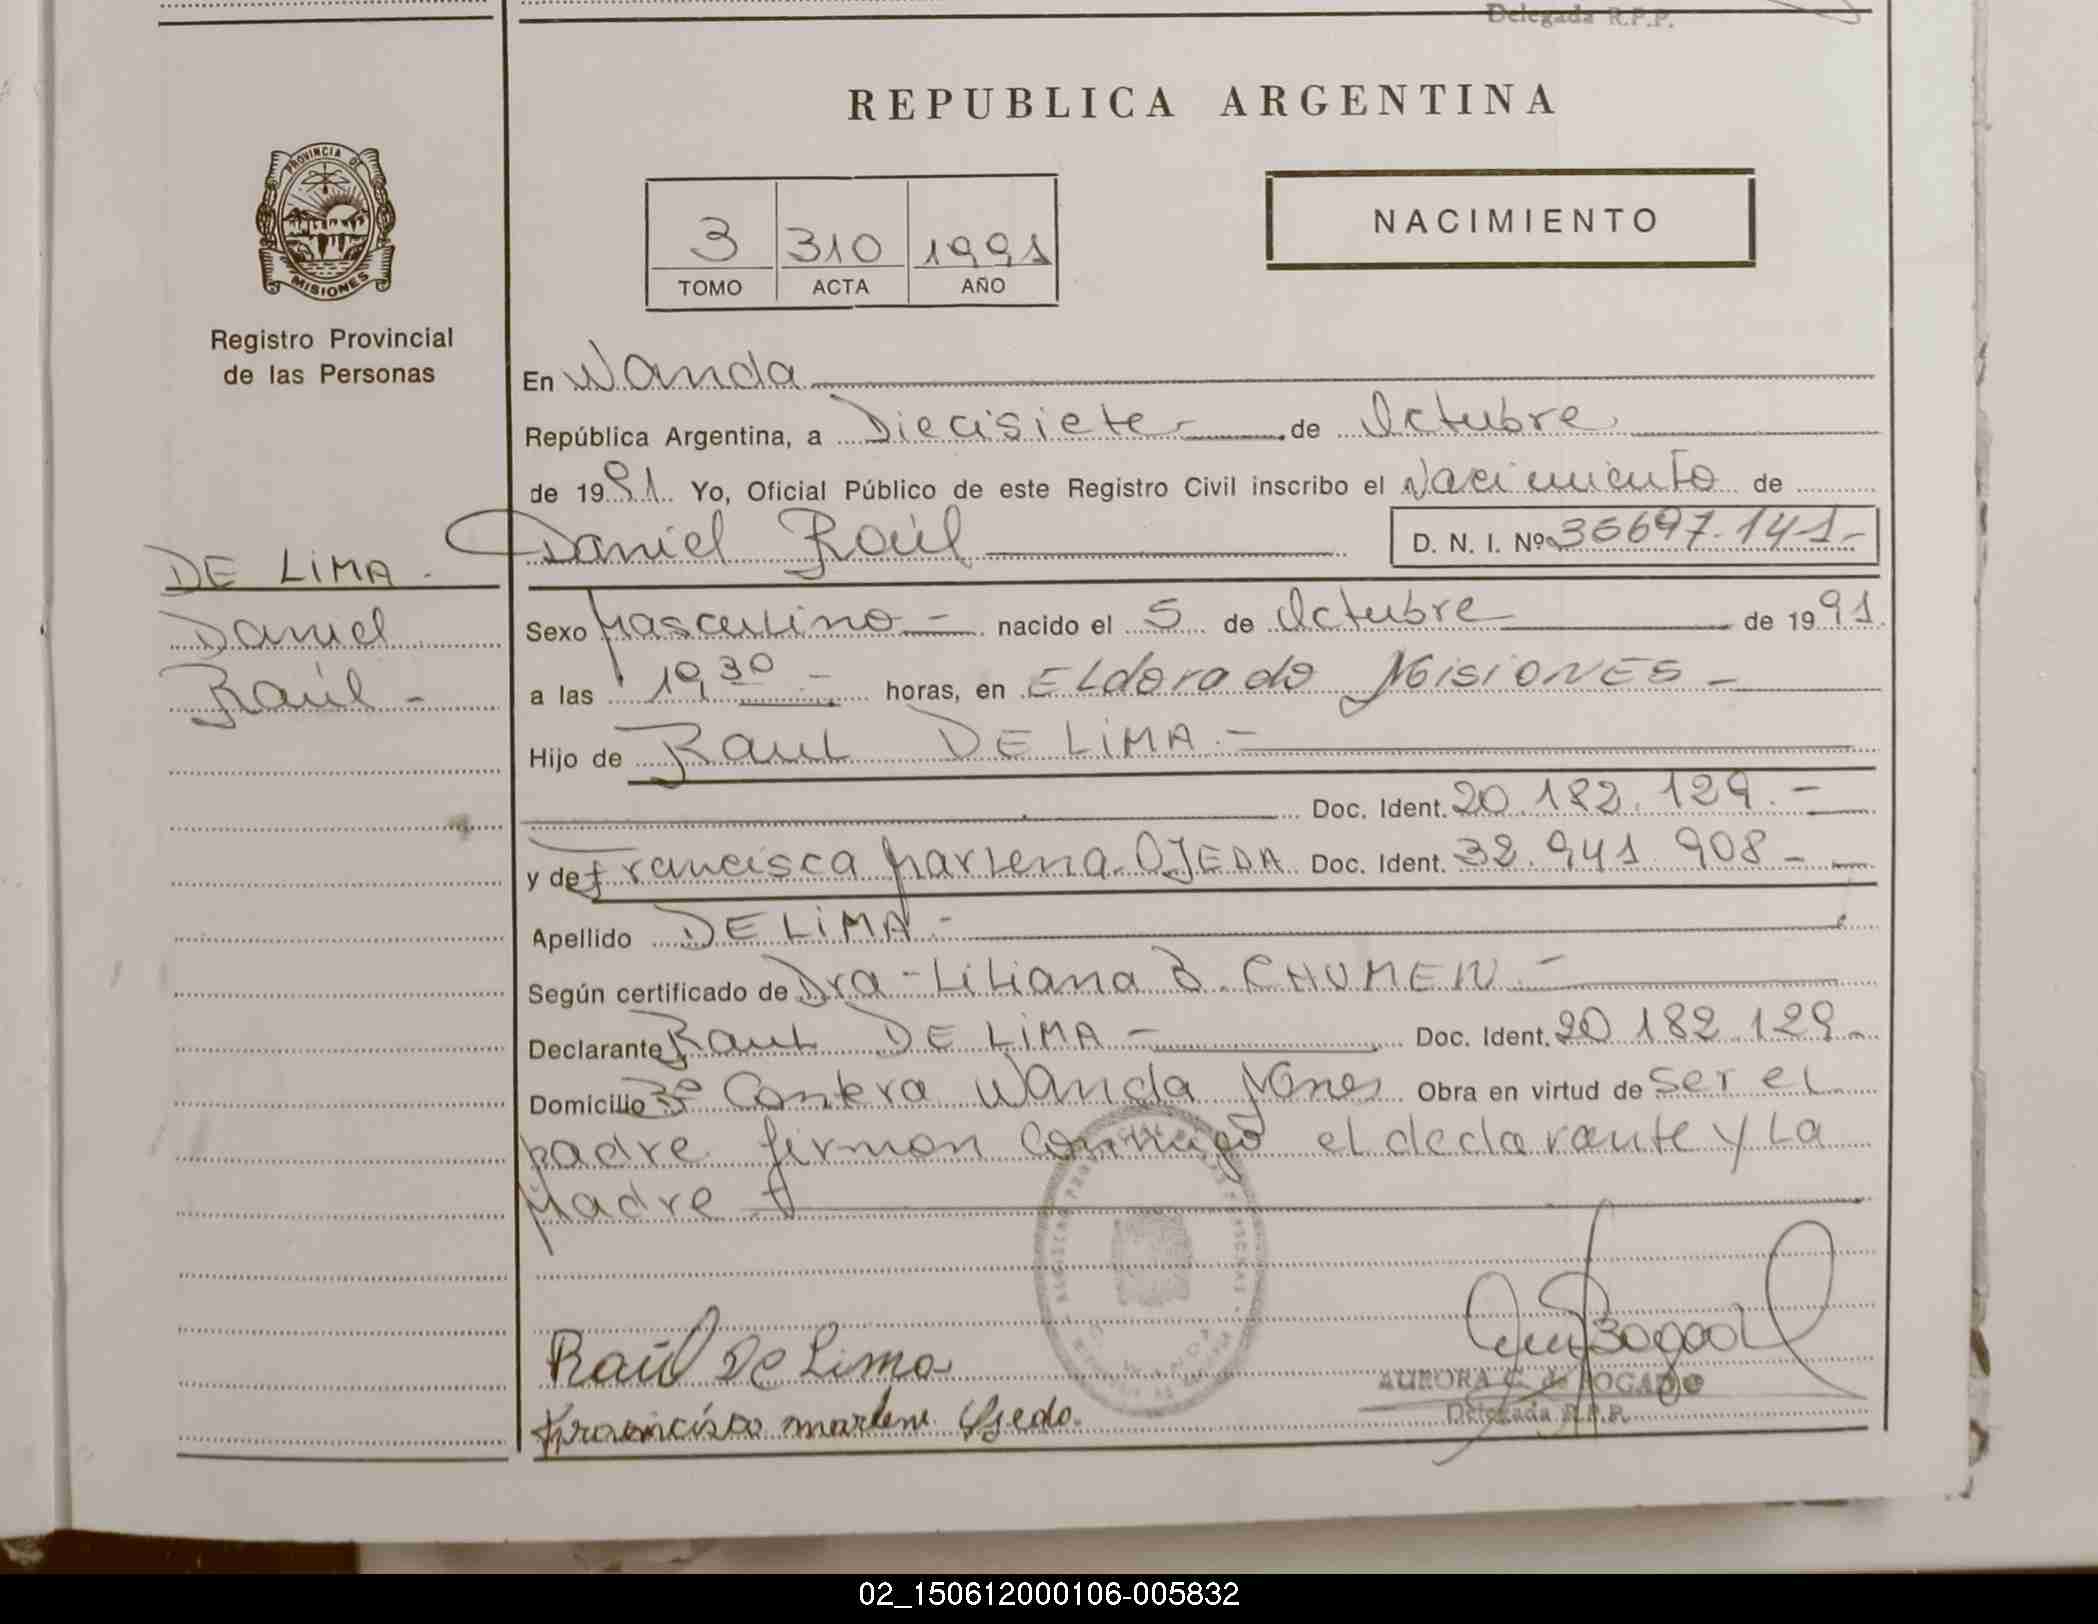 Delegada R.P.P.
REPUBLICA ARGENTINA
PROVINCIA DE
MISIONES
Registro Provincial
de las Personas
NACIMIENTO
3 310 1991
TOMO ACTA AÑO
En Wanda
República Argentina, a Diecisiete de Octubre
de 1991. Yo, Oficial Público de este Registro Civil inscribo el Nacimiento de
Daniel Raúl D. N. I. Nº 36697.141-
DE LIMA.
Daniel
Raúl -
Sexo Masculino - nacido el 5 de Octubre de 1991.
a las 19,30 - horas, en ELdorado MisiONES -
Hijo de Raul DE LIMA. -
Doc. Ident. 20.182.129. -
y de Francisca Marlena OJEDA Doc. Ident. 32.941.908 -
Apellido DE LIMA -
Según certificado de Dra - Liliana B. CHUMEN. -
Declarante Raul DE LIMA - Doc. Ident. 20.182.129 -
Domicilio Wanda Obra en virtud de ser el
padre firman conmigo el declarante y La
Madre
Raúl De Lima
Francisca marlene Ojeda.
AURORA C. de BOGADO
Delegada R.P.P.
02_150612000106-005832